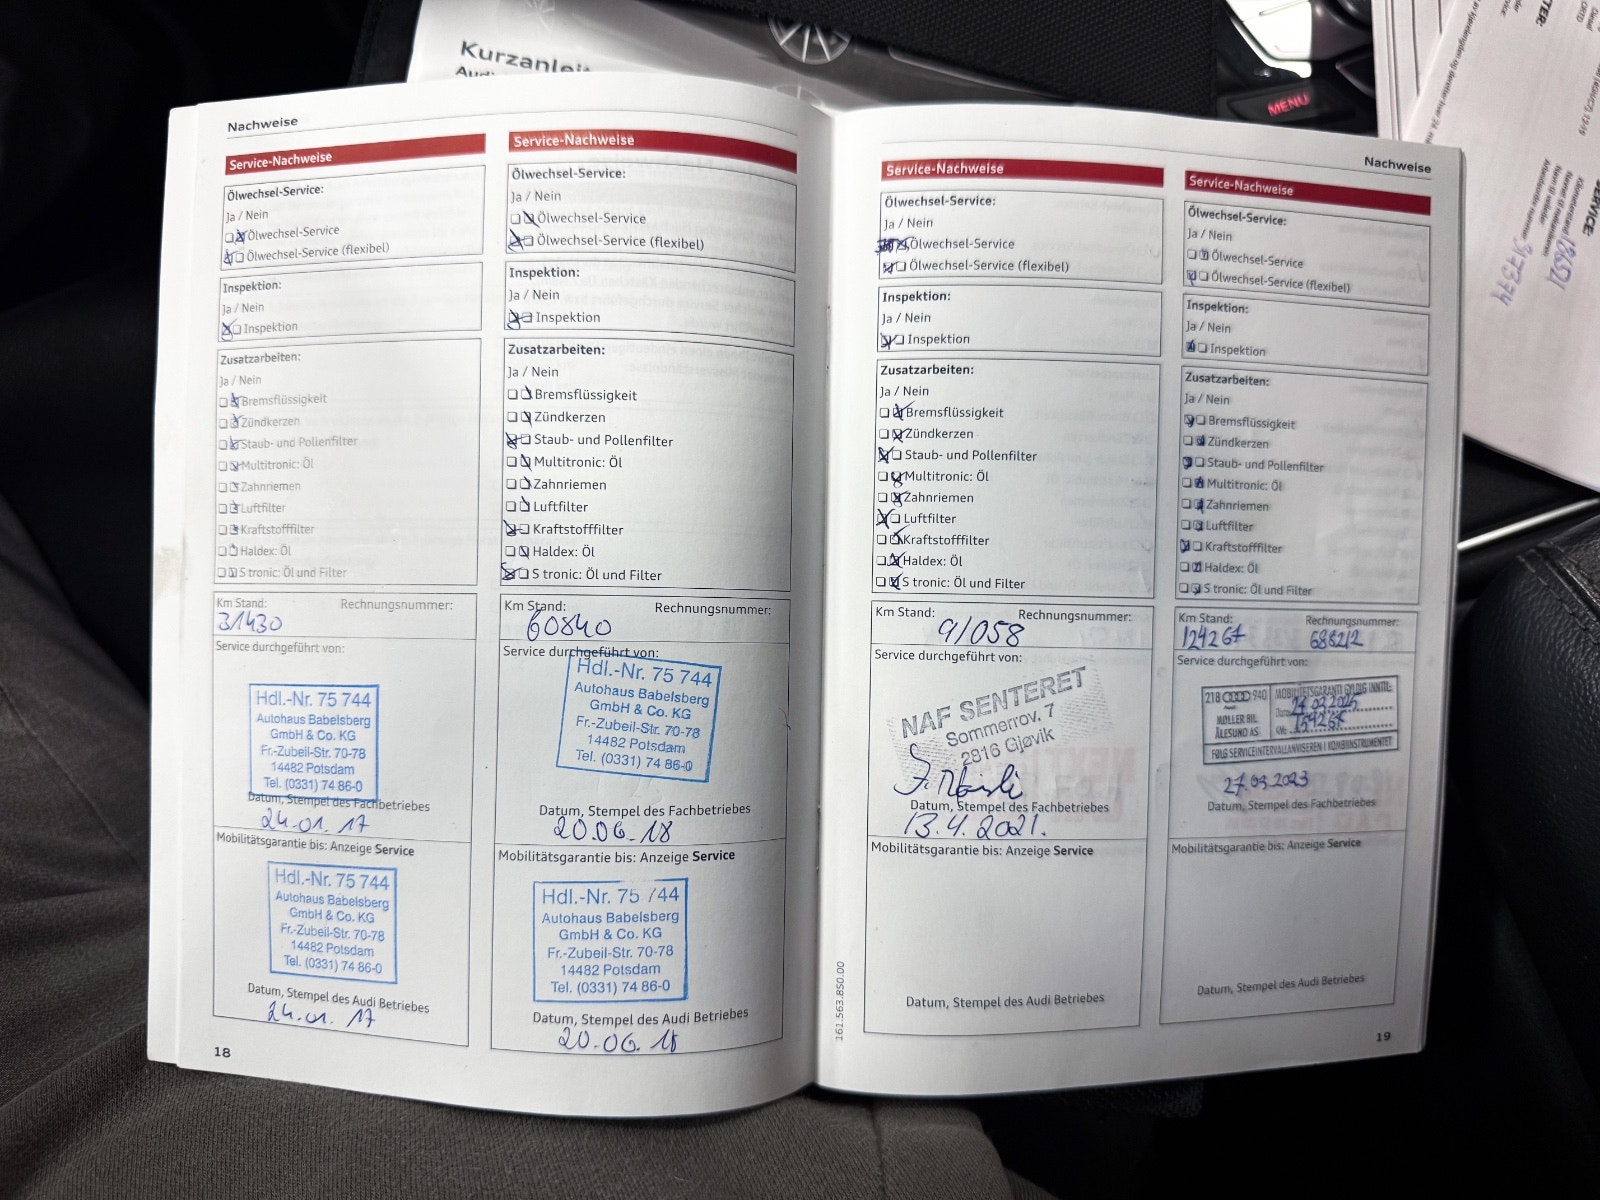 Kurzanleit
Audi
MENU
Nachweise
Service-Nachweise
Ölwechsel-Service:
Ja / Nein
Ölwechsel-Service
Ölwechsel-Service (flexibel)
Inspektion:
Ja / Nein
Inspektion
Zusatzarbeiten:
Ja / Nein
Bremsflüssigkeit
Zündkerzen
Staub- und Pollenfilter
Multitronic: Öl
Zahnriemen
Luftfilter
Kraftstofffilter
Haldex: Öl
S tronic: Öl und Filter
Km Stand: Rechnungsnummer:
31430
Service durchgeführt von:
Hdl.-Nr. 75 744
Autohaus Babelsberg
GmbH & Co. KG
Fr.-Zubeil-Str. 70-78
14482 Potsdam
Tel. (0331) 74 86-0
Datum, Stempel des Fachbetriebes
24.01.17
Mobilitätsgarantie bis: Anzeige Service
Hdl.-Nr. 75 744
Autohaus Babelsberg
GmbH & Co. KG
Fr.-Zubeil-Str. 70-78
14482 Potsdam
Tel. (0331) 74 86-0
Datum, Stempel des Audi Betriebes
24.01.17
18
Service-Nachweise
Ölwechsel-Service:
Ja / Nein
Ölwechsel-Service
Ölwechsel-Service (flexibel)
Inspektion:
Ja / Nein
Inspektion
Zusatzarbeiten:
Ja / Nein
Bremsflüssigkeit
Zündkerzen
Staub- und Pollenfilter
Multitronic: Öl
Zahnriemen
Luftfilter
Kraftstofffilter
Haldex: Öl
S tronic: Öl und Filter
Km Stand: Rechnungsnummer:
60840
Service durchgeführt von:
Hdl.-Nr. 75 744
Autohaus Babelsberg
GmbH & Co. KG
Fr.-Zubeil-Str. 70-78
14482 Potsdam
Tel. (0331) 74 86-0
Datum, Stempel des Fachbetriebes
20.06.18
Mobilitätsgarantie bis: Anzeige Service
Hdl.-Nr. 75 744
Autohaus Babelsberg
GmbH & Co. KG
Fr.-Zubeil-Str. 70-78
14482 Potsdam
Tel. (0331) 74 86-0
Datum, Stempel des Audi Betriebes
20.06.18
Nachweise
Service-Nachweise
Ölwechsel-Service:
Ja / Nein
Ölwechsel-Service
Ölwechsel-Service (flexibel)
Inspektion:
Ja / Nein
Inspektion
Zusatzarbeiten:
Ja / Nein
Bremsflüssigkeit
Zündkerzen
Staub- und Pollenfilter
Multitronic: Öl
Zahnriemen
Luftfilter
Kraftstofffilter
Haldex: Öl
S tronic: Öl und Filter
Km Stand: Rechnungsnummer:
91058
Service durchgeführt von:
NAF SENTERET
Sommerrov. 7
2816 Gjøvik
Datum, Stempel des Fachbetriebes
13.4.2021.
Mobilitätsgarantie bis: Anzeige Service
Datum, Stempel des Audi Betriebes
161.563.8S0.00
Service-Nachweise
Ölwechsel-Service:
Ja / Nein
Ölwechsel-Service
Ölwechsel-Service (flexibel)
Inspektion:
Ja / Nein
Inspektion
Zusatzarbeiten:
Ja / Nein
Bremsflüssigkeit
Zündkerzen
Staub- und Pollenfilter
Multitronic: Öl
Zahnriemen
Luftfilter
Kraftstofffilter
Haldex: Öl
S tronic: Öl und Filter
Km Stand: Rechnungsnummer:
124267 688212
Service durchgeführt von:
218 940 MOBILITETSGARANTI GYLDIG INNTIL:
MØLLER BIL
ÅLESUND AS
FØLG SERVICEINTERVALLANVISEREN I KOMBIINSTRUMENTET
27.03.2023
Datum, Stempel des Fachbetriebes
Mobilitätsgarantie bis: Anzeige Service
Datum, Stempel des Audi Betriebes
19